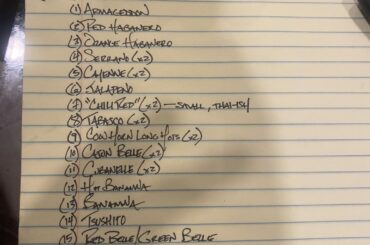 (1) ARMAGEDDON
(2) RED HABANERO
(3) ORANGE HABANERO
(4) SERRANO (x2)
(5) CAYENNE (x2)
(6) JALAPENO
(7) "CHILI RED" (x2) — SMALL, THAI-ISH
(8) TABASCO (x2)
(9) COWHORN LONG HOTS (x2)
(10) CAJUN BELLE (x2)
(11) CUBANELLE (x2)
(12) HOT BANANNA
(13) BANANNA
(14) TSUSHITO
(15) RED BELLE/GREEN BELLE